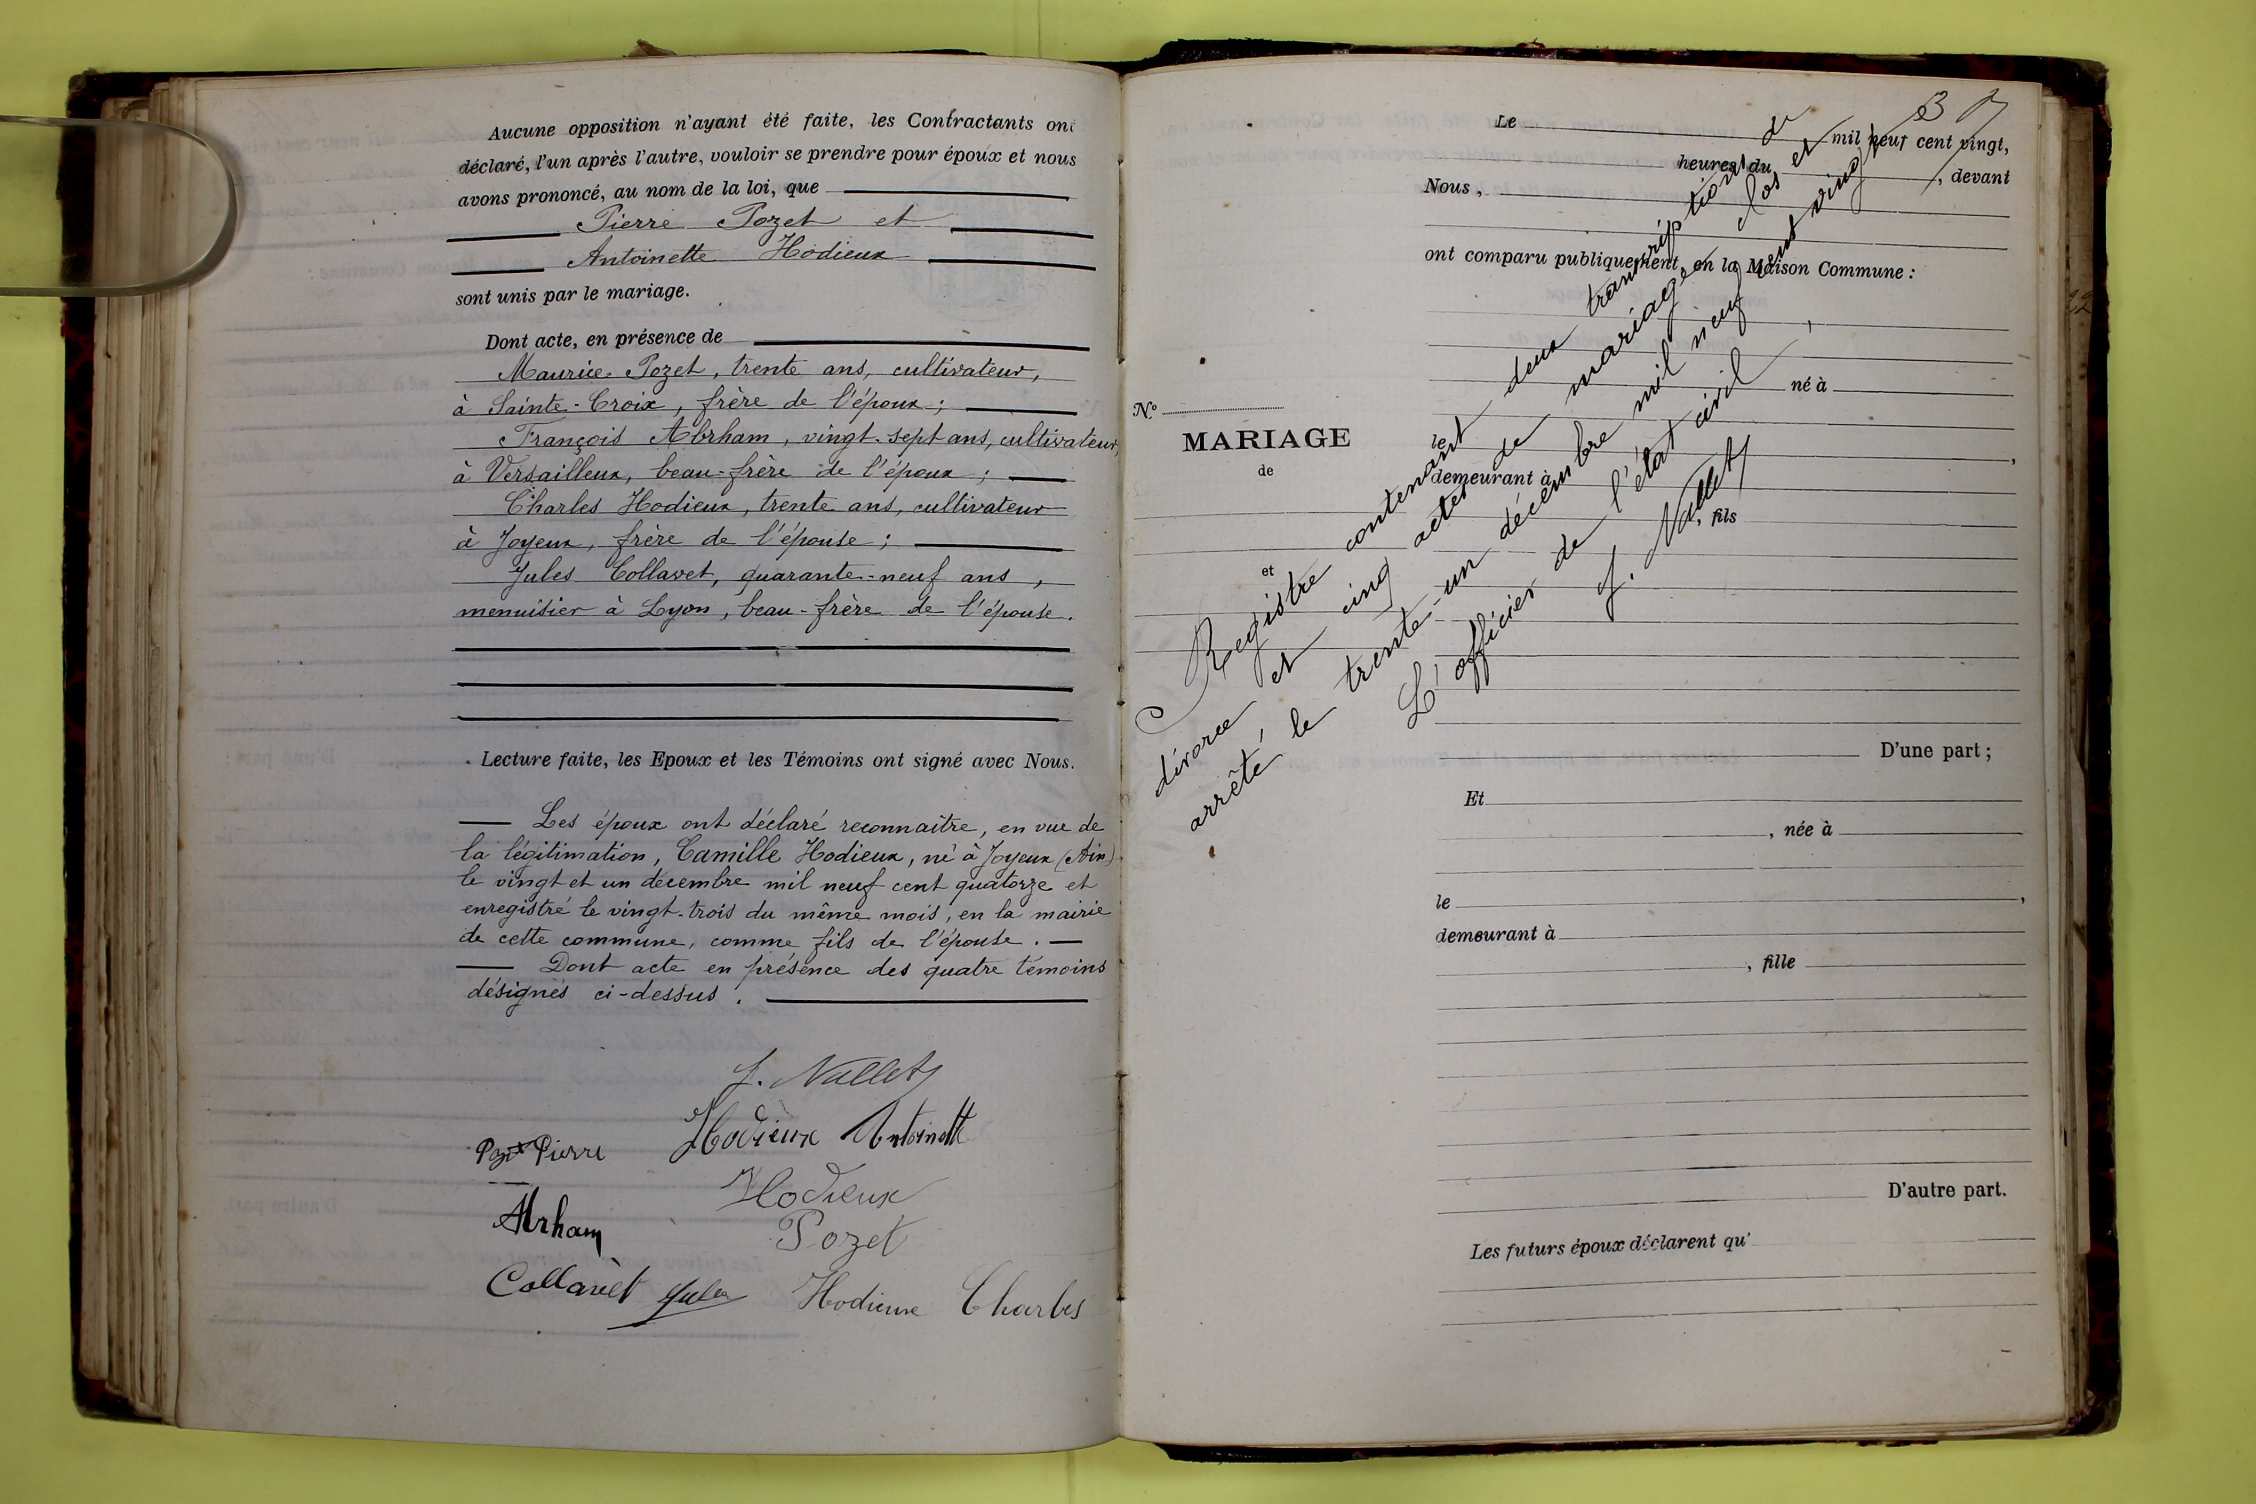 Aucune opposition n'ayant été faite, les Contractants ont
déclaré, l'un après l'autre, vouloir se prendre pour époux et nous
avons prononcé, au nom de la loi, que
Pierre Pozet et
Antoinette Hodieux
sont unis par le mariage.
Dont acte, en présence de
Maurice Pozet, trente ans, cultivateur,
à Sainte-Croix, frère de l'époux ;
François Abrham, vingt-sept ans, cultivateur,
à Versailleux, beau-frère de l'époux ;
Charles Hodieux, trente ans, cultivateur
à Joyeux, frère de l'épouse ;
Jules Collavet, quarante-neuf ans,
menuisier à Lyon, beau-frère de l'épouse.
Lecture faite, les Epoux et les Témoins ont signé avec Nous.
Les époux ont déclaré reconnaître, en vue de
la légitimation, Camille Hodieux, né à Joyeux (Ain)
le vingt et un décembre mil neuf cent quatorze et
enregistré le vingt-trois du même mois, en la mairie
de cette commune, comme fils de l'épouse.
Dont acte en présence des quatre témoins
désignés ci-dessus.
J. Nallet
Pozet Pierre Hodieux Antoinette
Hodieux
Abrham
Pozet
Collavet Jules Hodieux Charles
37
Le
mil neuf cent vingt,
heures du , devant
Nous,
ont comparu publiquement en la Maison Commune :
né à
N°
MARIAGE
de
le
demeurant à
, fils
et
Registre contenant deux transcriptions de
divorce et cinq actes de mariage clos et
arrêté, le trente-un décembre mil neuf cent vingt
L'officier de l'état civil,
J. Nallet
D'une part ;
Et
, née à
le ,
demeurant à
, fille
D'autre part.
Les futurs époux déclarent qu'